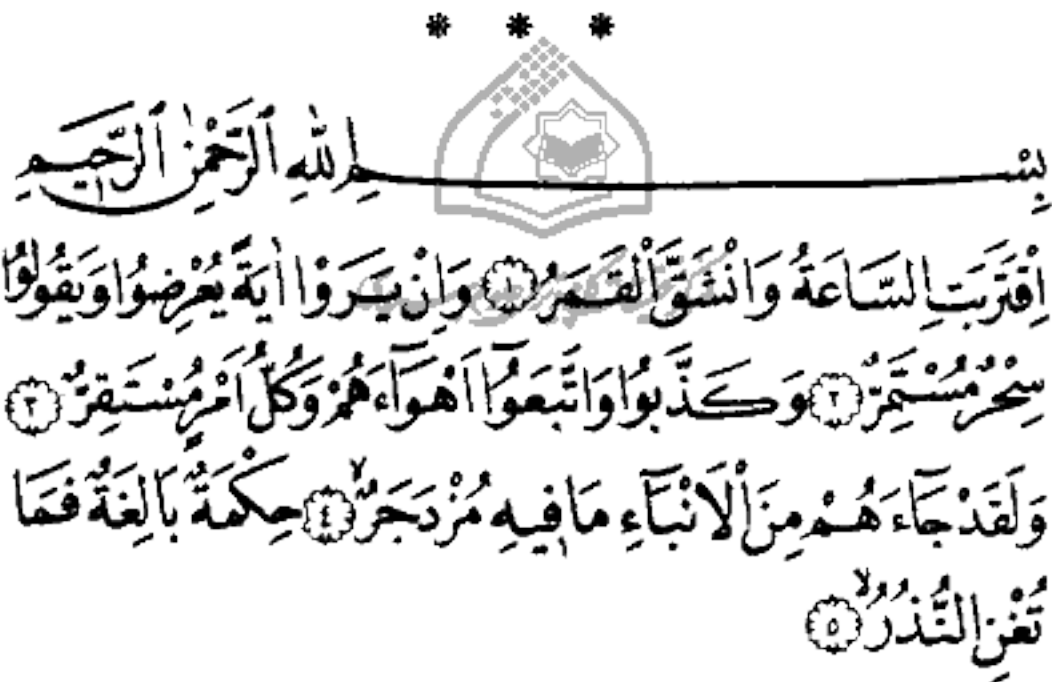 * * *
بِسْــــــمِ اللّٰهِ الرَّحْمٰنِ الرَّحِيمِ
اِقْتَرَبَتِ السَّاعَةُ وَانْشَقَّ الْقَمَرُ ﴿١﴾ وَاِنْ يَرَوْا اٰيَةً يُعْرِضُوا وَيَقُولُوا
سِحْرٌ مُسْتَمِرٌّ ﴿٢﴾ وَكَذَّبُوا وَاتَّبَعُٓوا اَهْوَٓاءَهُمْ وَكُلُّ اَمْرٍ مُسْتَقِرٌّ ﴿٣﴾
وَلَقَدْ جَٓاءَهُمْ مِنَ الْاَنْبَٓاءِ مَا فِيهِ مُزْدَجَرٌۙ ﴿٤﴾ حِكْمَةٌ بَالِغَةٌ فَمَا
تُغْنِ النُّذُرُۙ ﴿٥﴾